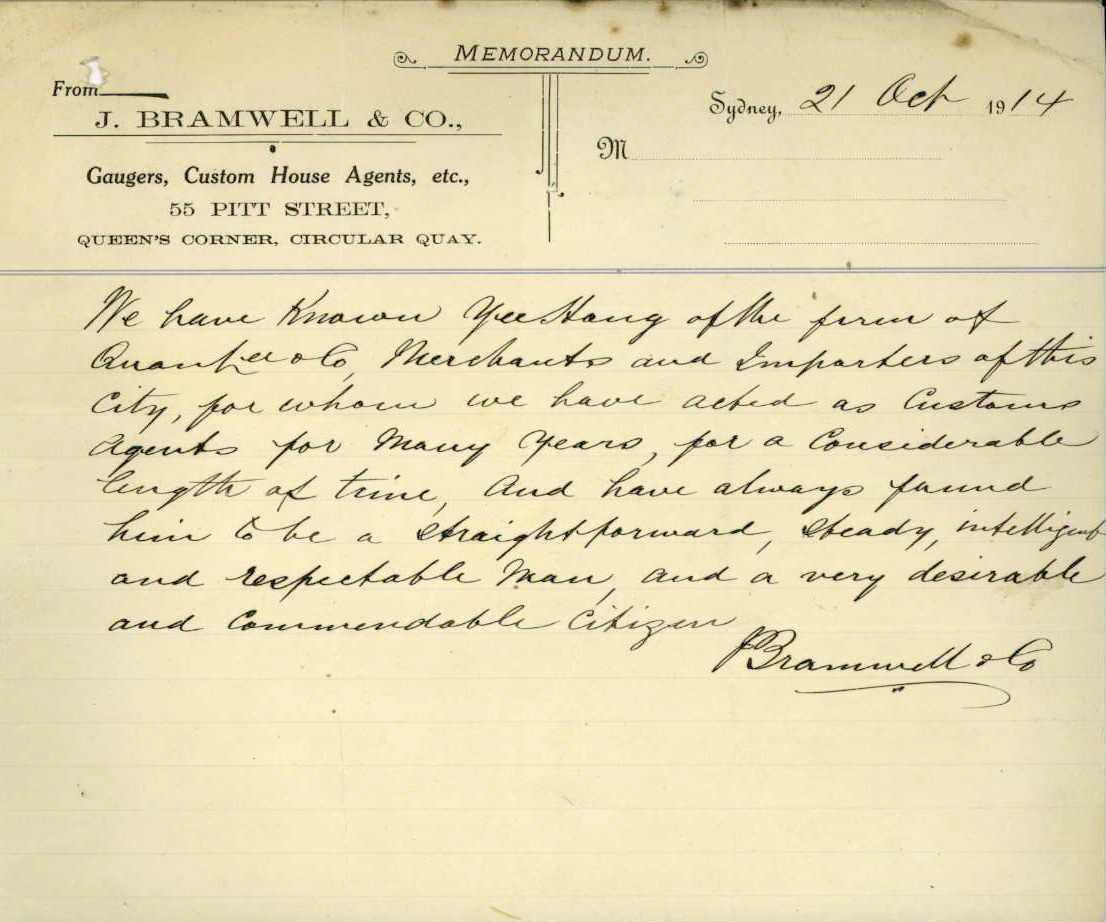 MEMORANDUM.
From
J. BRAMWELL & CO.,
Gaugers, Custom House Agents, etc.,
55 PITT STREET,
QUEEN'S CORNER, CIRCULAR QUAY.
Sydney, 21 Oct 1914
M
We have Known Yee Hang of the firm of
& Co, Merchants and Importers of this
City, for whom we have acted as Customs
Agents for Many Years, for a Considerable
length of time, And have always found
him to be a straightforward, steady, intelligent
and respectable Man, and a very desirable
and Commendable Citizen
J Bramwell & Co